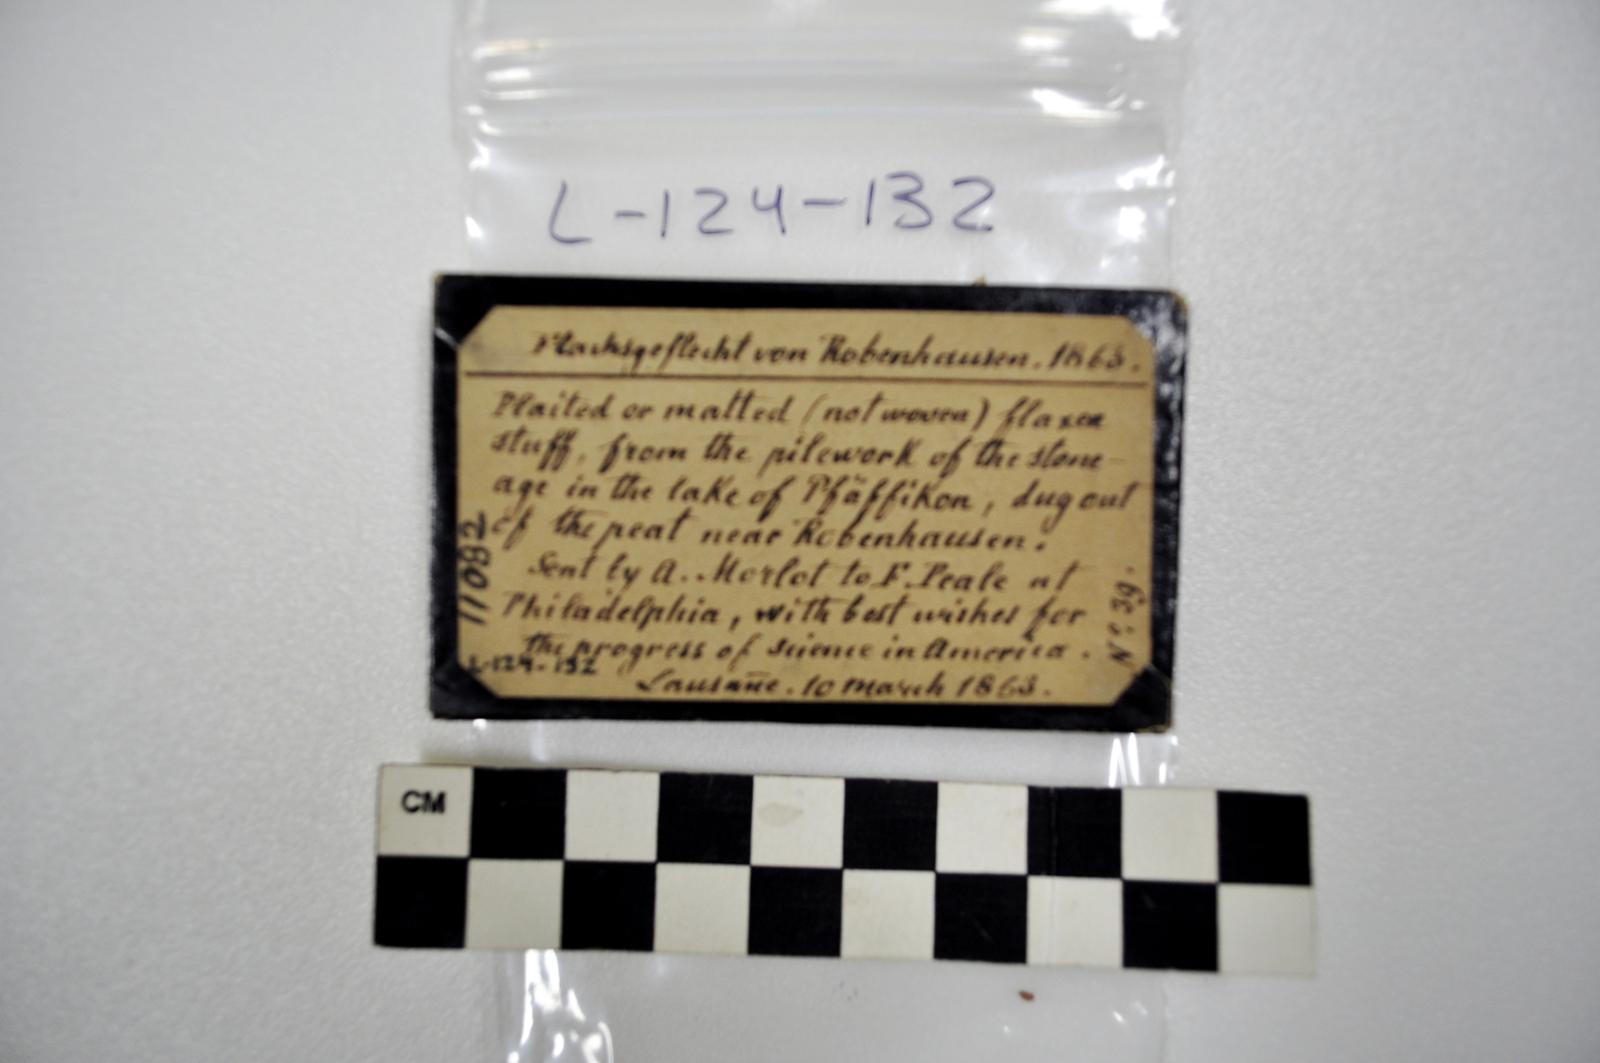 L-124-132
Flachsgeflecht von Robenhausen. 1863.
Plaited or matted (not woven) flaxen
stuff, from the pilework of the stone-
age in the lake of Pfäffikon, dug out
of the peat near Robenhausen.
Sent by A. Morlot to F. Peale at
Philadelphia, with best wishes for
the progress of science in America.
Lausanne. 10 March 1863.
11082
L-124-132
Nº 39.
CM